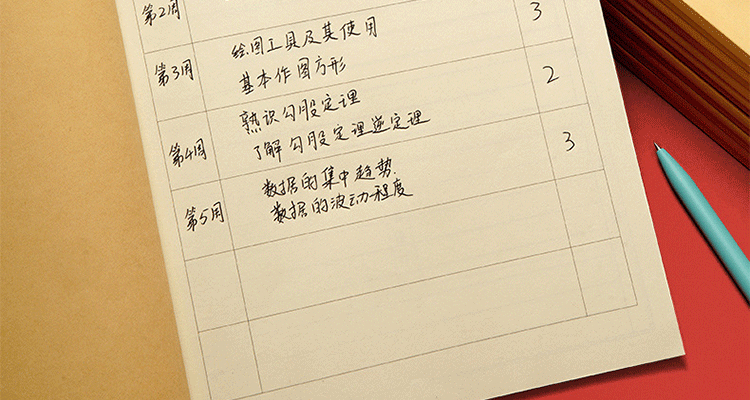 第2周
3
第3周
绘图工具及其使用
基本作图方形
2
第4周
熟识勾股定理
了解勾股定理逆定理
3
第5周
数据的集中趋势.
数据的波动程度